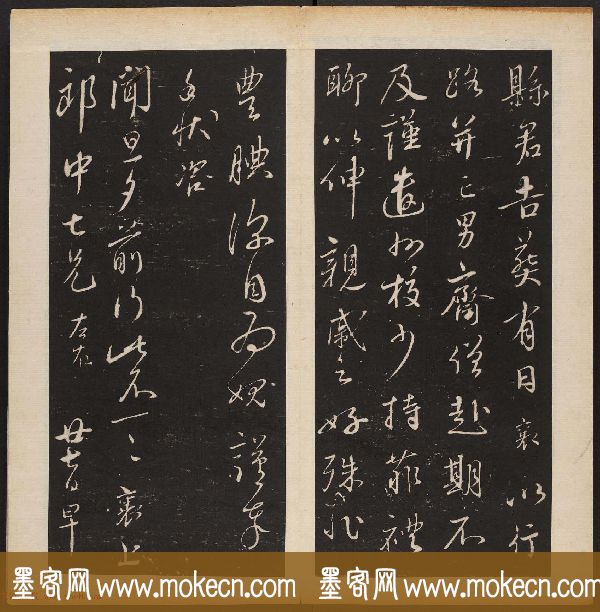 縣君吉葬有日襄以行
路并亡男齋僧赴期不
及謹遣州校少持菲禮
聊以伸親戚之好殊非
豐腆深自為愧謹奉
手状咨
聞旦夕前行此不一一襄上
郎中七兄左右 廿七日早
墨客网 www.mokecn.com
墨客网 www.mokecn.com